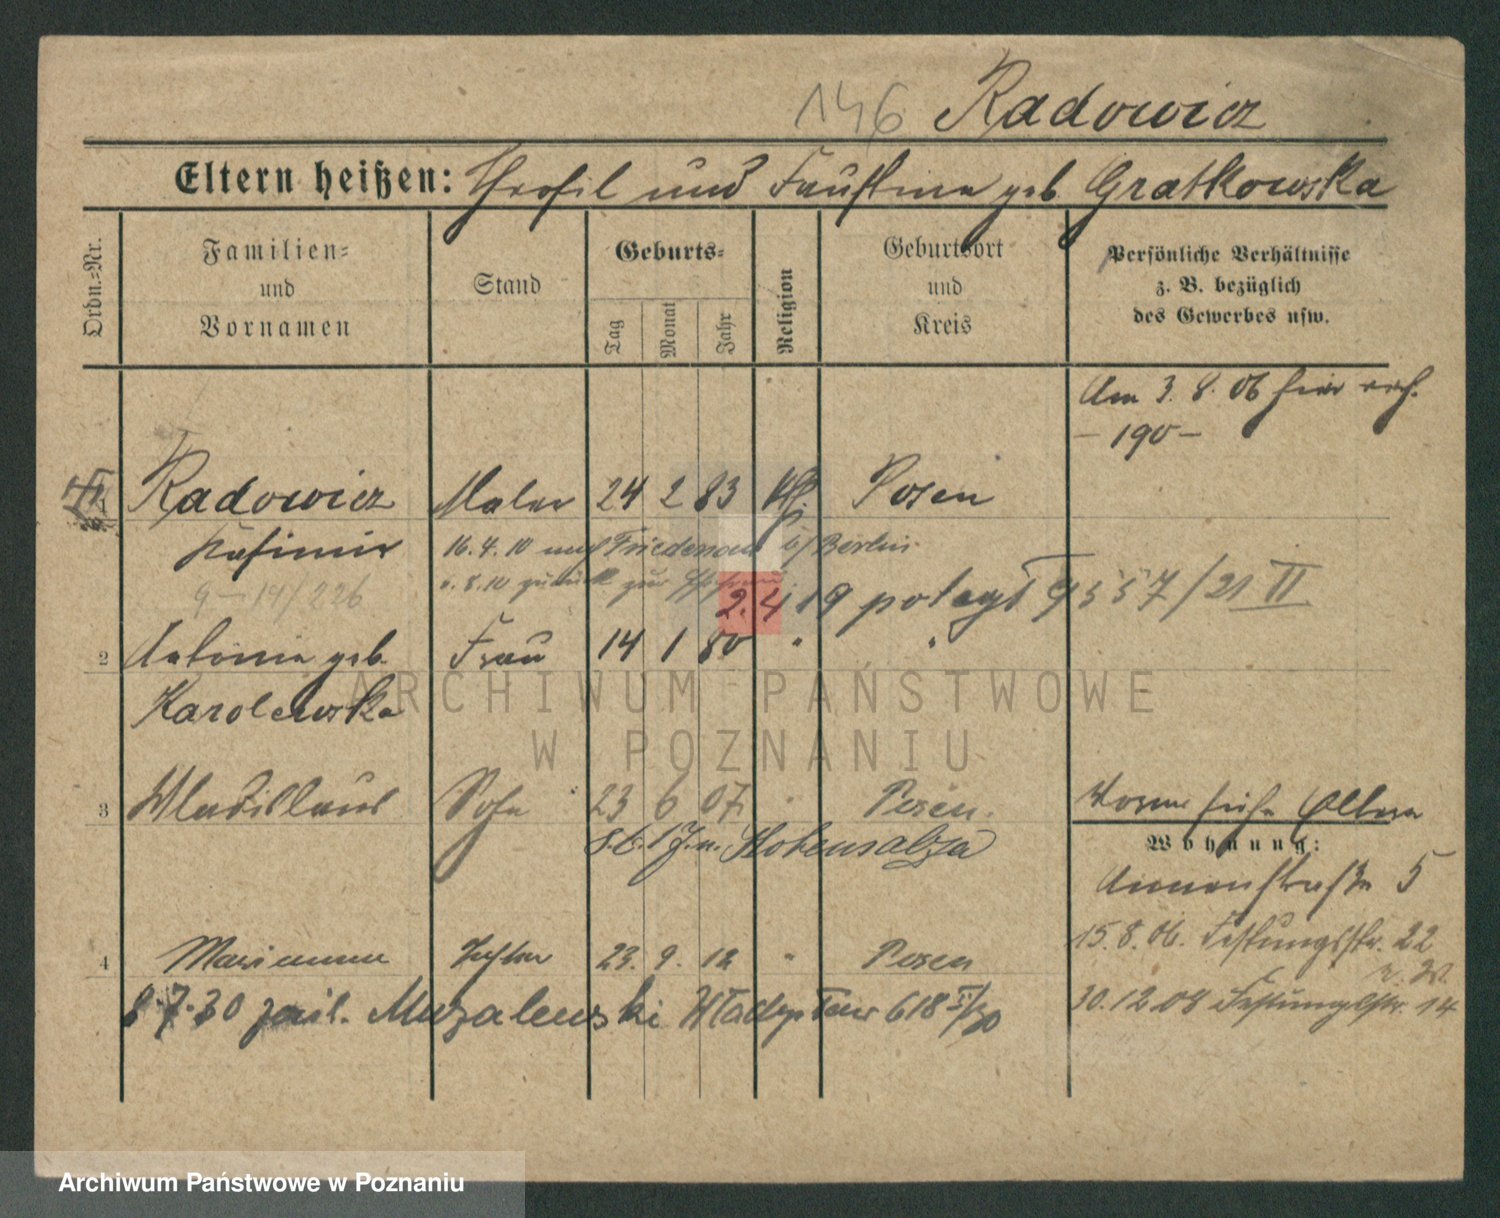 146 Radowicz
Eltern heißen: Theofil und Faustina geb. Gratkowska
Ordn.-Nr.
Familien-
und
Vornamen
Stand
Geburts-
Tag
Monat
Jahr
Religion
Geburtsort
und
Kreis
Persönliche Verhältnisse
z. B. bezüglich
des Gewerbes usw.
Am 3. 8. 06 hier
– 190 –
1 Radowicz Maler 24 2 83 Posen
Kasimir 16. 4. 10 nach Friedenau b/Berlin.
9 – 14/226 8. 10 zurück zur
2. 4. 19 poległ 9557/21 II
2 Antonie geb. Frau 14 1 80 " "
Karolewska
ARCHIWUM PAŃSTWOWE
W POZNANIU
3 Wladislaus Sohn 23 6 07 " Posen.
Hohensalza
Wohnung:
Annenstraße 5
15. 8. 06. Festungsstr. 22
4 Marianna Tochter 23. 9. 12 " Posen
30. 12 08 Festungsstr. 14
8. 7. 30 Muzalewski Władysław 618 /30
Archiwum Państwowe w Poznaniu